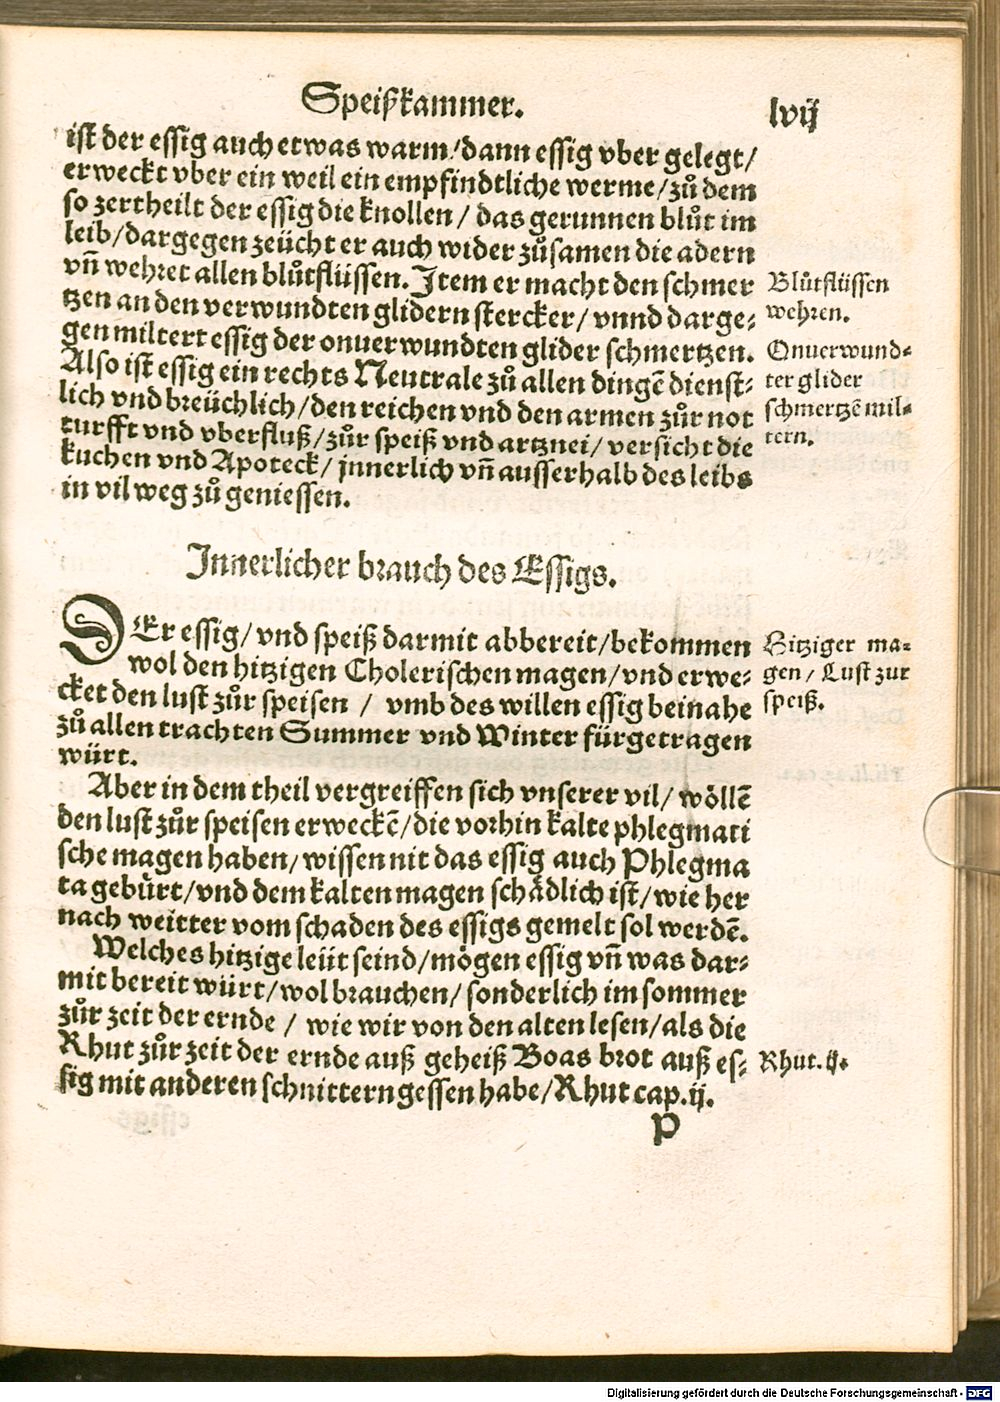 Speißkammer.
lvij
ist der essig auch etwas warm/dann essig vber gelegt/
erweckt vber ein weil ein empfindtliche werme/zů dem
so zertheilt der essig die knollen/ das gerunnen blůt im
leib/dargegen zeücht er auch wider zůsamen die adern
vñ wehret allen blůtflüssen. Item er macht den schmer
tzen an den verwundten glidern stercker/ vnnd darge-
gen miltert essig der onuerwundten glider schmertzen.
Also ist essig ein rechts Neutrale zů allen dingẽ dienst-
lich vnd breüchlich/den reichen vnd den armen zůr not
turfft vnd vberfluß/zůr speiß vnd artznei/ versicht die
kuchen vnd Apoteck/ jnnerlich vñ ausserhalb des leibs
in vil weg zů geniessen.
Blůtflüssen
wehren.
Onuerwund-
ter glider
schmertzẽ mil-
tern.
Innerlicher brauch des Essigs.
DEr essig/vnd speiß darmit abbereit/bekommen
wol den hitzigen Cholerischen magen/vnd erwe-
cket den lust zůr speisen / vmb des willen essig beinahe
zů allen trachten Summer vnd Winter fürgetragen
würt.
Hitziger ma-
gen/ Lust zur
speiß.
Aber in dem theil vergreiffen sich vnserer vil/ wöllẽ
den lust zůr speisen erweckẽ/die vorhin kalte phlegmati
sche magen haben/wissen nit das essig auch Phlegma
ta gebürt/vnd dem kalten magen schädlich ist/wie her
nach weitter vom schaden des essigs gemelt sol werdẽ.
Welches hitzige leüt seind/mögen essig vñ was dar-
mit bereit würt/wol brauchen/ sonderlich im sommer
zůr zeit der ernde / wie wir von den alten lesen/als die
Rhut zůr zeit der ernde auß geheiß Boas brot auß es-
sig mit anderen schnittern gessen habe/Rhut cap.ij.
Rhut.ij.
P
Digitalisierung gefördert durch die Deutsche Forschungsgemeinschaft - DFG